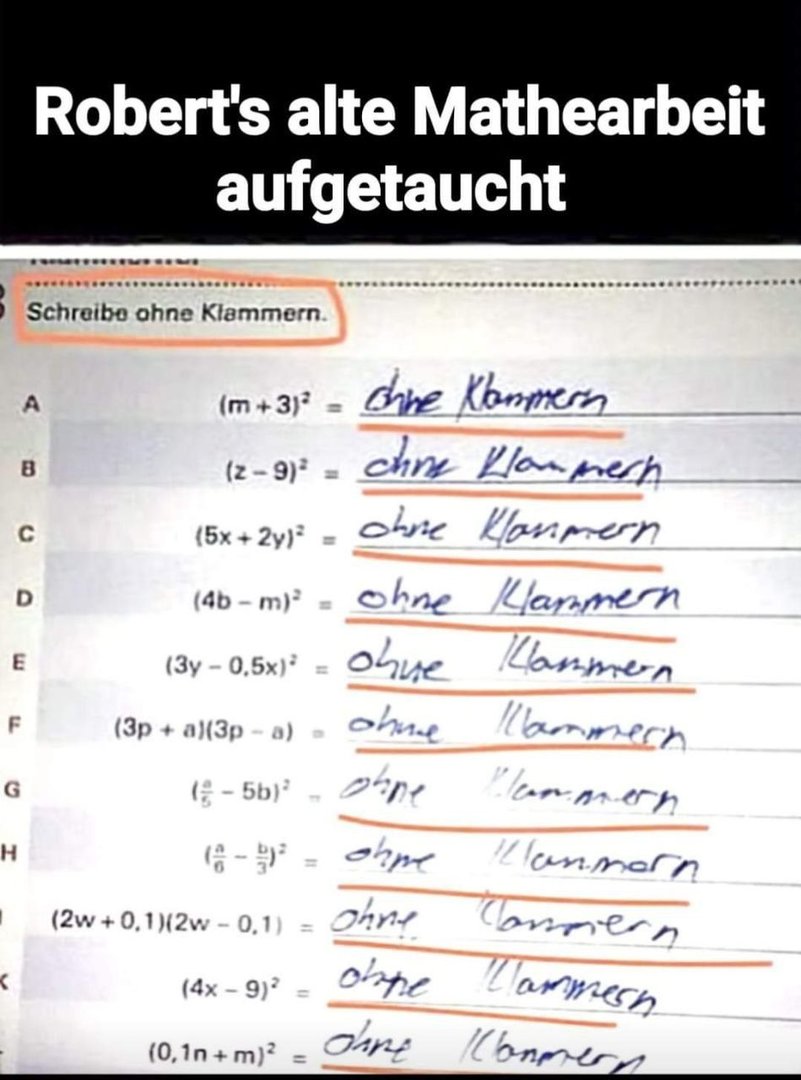 Robert's alte Mathearbeit
aufgetaucht
Schreibe ohne Klammern.
A (m + 3)² = ohne Klammern
B (z – 9)² = ohne Klammern
C (5x + 2y)² = ohne Klammern
D (4b – m)² = ohne Klammern
E (3y – 0,5x)² = ohne Klammern
F (3p + a)(3p – a) = ohne Klammern
G (a/5 – 5b)² = ohne Klammern
H (a/6 – b/3)² = ohne Klammern
(2w + 0,1)(2w – 0,1) = ohne Klammern
K (4x – 9)² = ohne Klammern
(0,1n + m)² = ohne Klammern